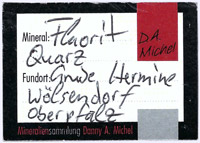 Mineral: Fluorit
Quarz
D.A. Michel
Fundort: Grube Hermine
Wölsendorf
Oberpfalz
Mineraliensammlung Danny A. Michel